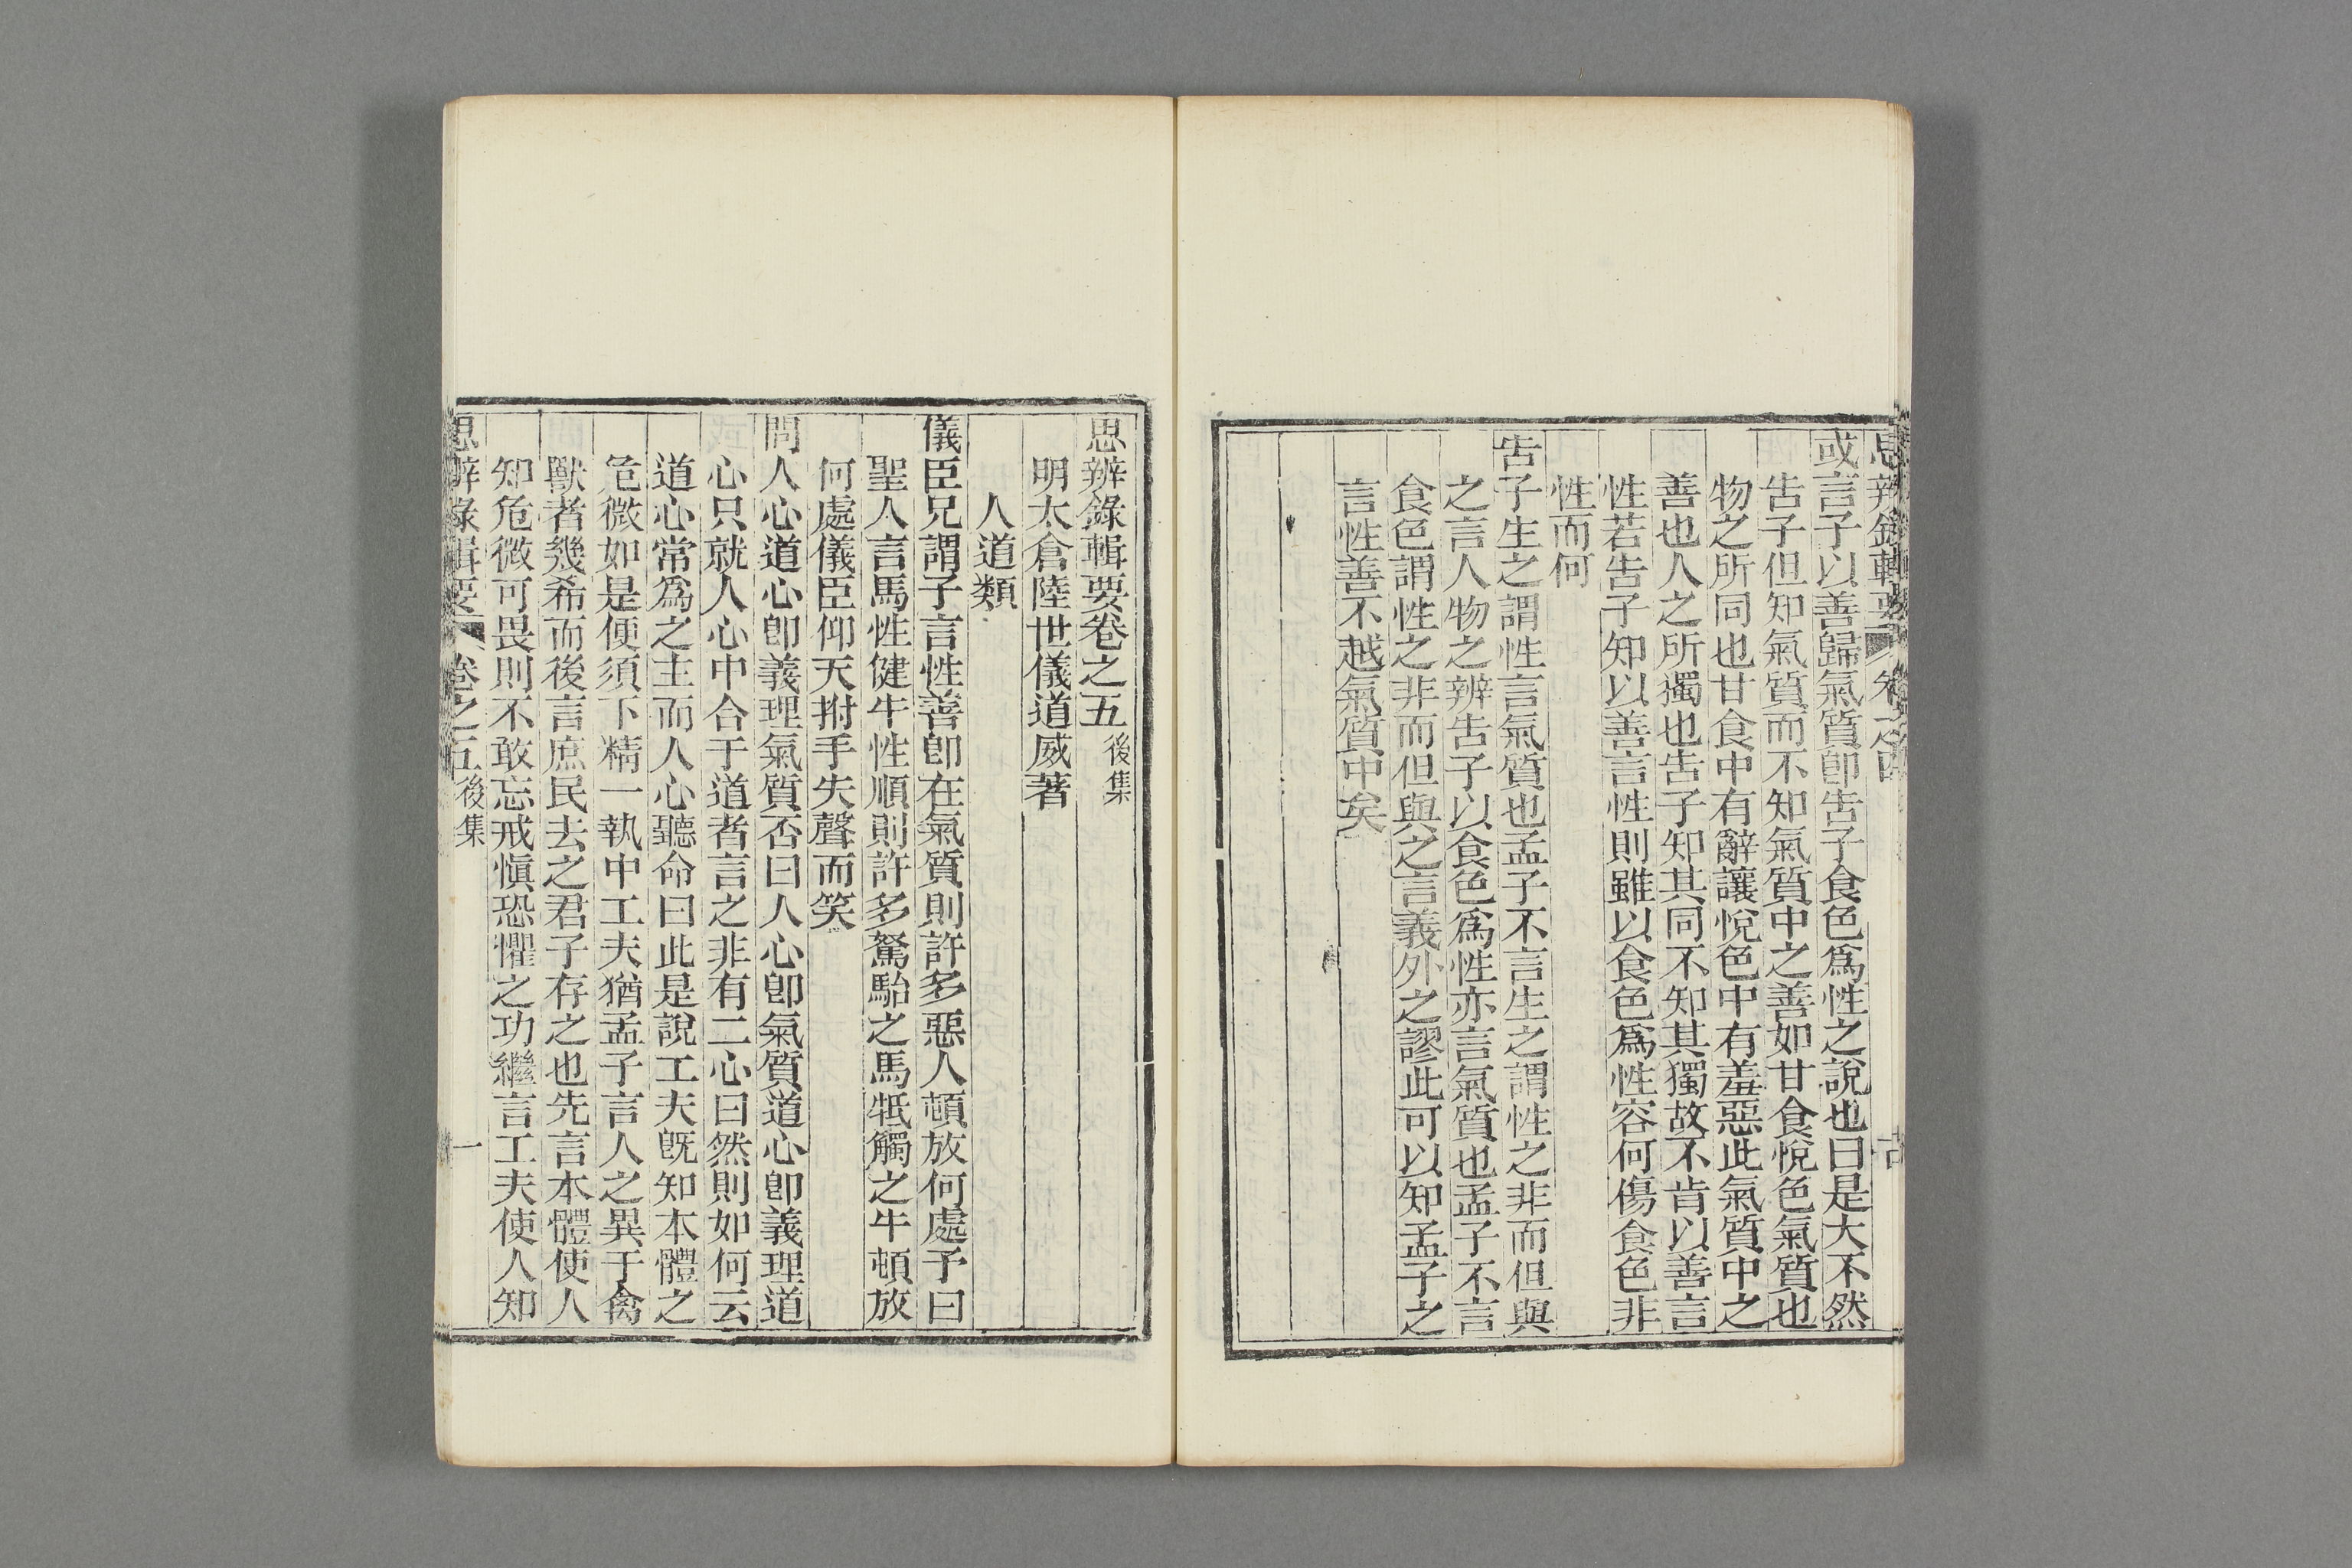 思辨錄輯要 卷之四
或言子以善歸氣質卽告子食色爲性之說也曰是大不然
告子但知氣質而不知氣質中之善如甘食悅色氣質也
物之所同也甘食中有辭讓悅色中有羞惡此氣質中之
善也人之所獨也告子知其同不知其獨故不肯以善言
性若告子知以善言性則雖以食色爲性容何傷食色非
性而何
告子生之謂性言氣質也孟子不言生之謂性之非而但與
之言人物之辨告子以食色爲性亦言氣質也孟子不言
食色謂性之非而但與之言義外之謬此可以知孟子之
言性善不越氣質中矣
思辨錄輯要卷之五後集
明太倉陸世儀道威著
人道類
儀臣兄謂子言性善卽在氣質則許多惡人頓放何處予曰
聖人言馬性健牛性順則許多駑駘之馬牴觸之牛頓放
何處儀臣仰天拊手失聲而笑
問人心道心卽義理氣質否曰人心卽氣質道心卽義理道
心只就人心中合于道者言之非有二心曰然則如何云
道心常爲之主而人心聽命曰此是說工夫旣知本體之
危微如是便須下精一執中工夫猶孟子言人之異于禽
獸者幾希而後言庶民去之君子存之也先言本體使人
知危微可畏則不敢忘戒愼恐懼之功繼言工夫使人知
思辨錄輯要 卷之五後集 一